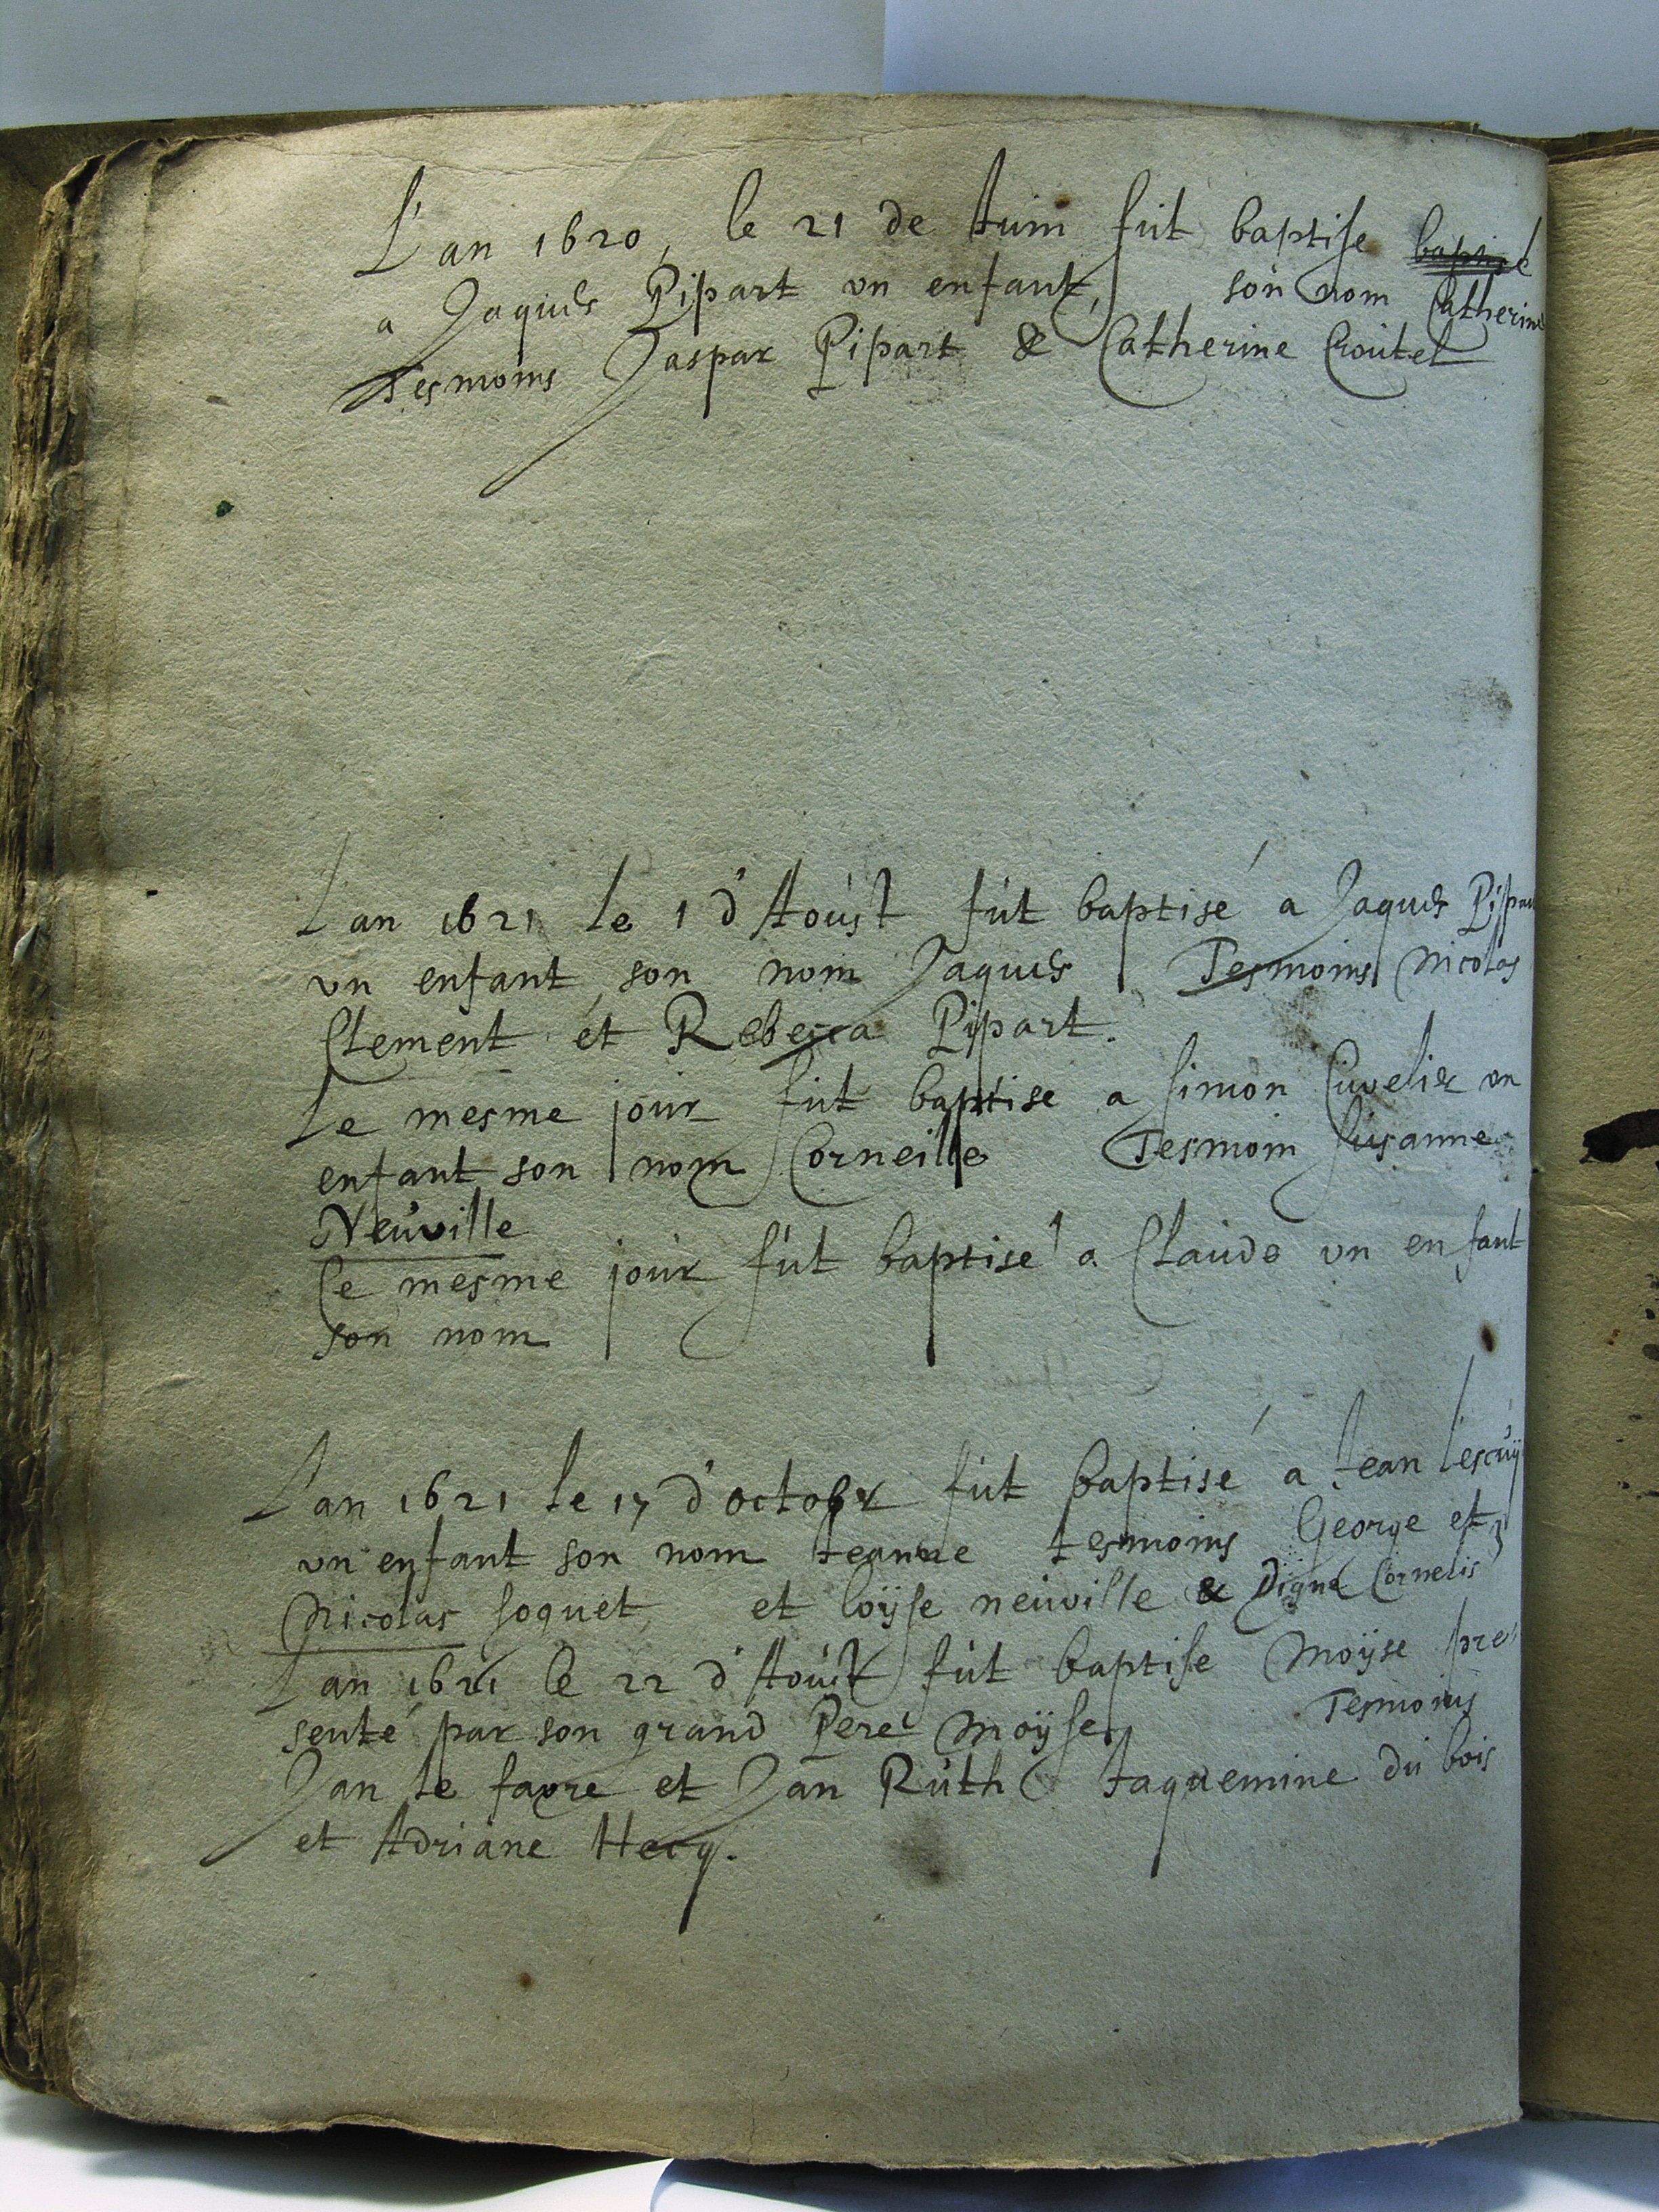 L'an 1620, le 21 de Juin fut baptise baptisé
a Jaques Pipart un enfant, son nom Catherine
Tesmoins Jaspar Pipart & Catherine Croutel
L'an 1621 le 1 d'Aoust fut baptisé a Jaques Pipart
un enfant son nom Jaques Tesmoins Nicolas
Clement et Rebecca Pipart.
Le mesme jour fut baptise a Simon Cuvelier un
enfant son nom Corneille Tesmoin Susanne
Neuville
Le mesme jour fut baptisé a Claude un enfant
son nom
L'an 1621 le 17 d'octobr fut baptisé a Jean Lescuÿ
un enfant son nom Jeanne tesmoins George et
Nicolas soquet et loÿse neuville & Digne Cornelis
L'an 1621 le 22 d'Aoust fut baptise Moÿse pre
senté par son grand Pere Moÿse, Tesmoins
Jan le favre et Jan Ruth Jaquemine du bois
et Adriane Hecq.